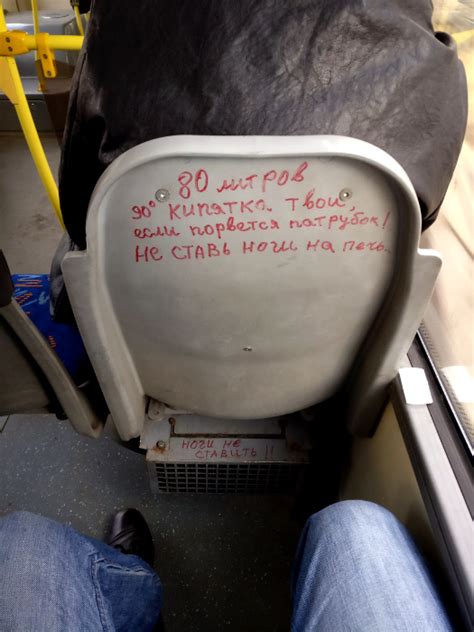 80 литров
90° кипятка твои,
если порвется патрубок!
не ставь ноги на печь.
ноги не
ставить!!